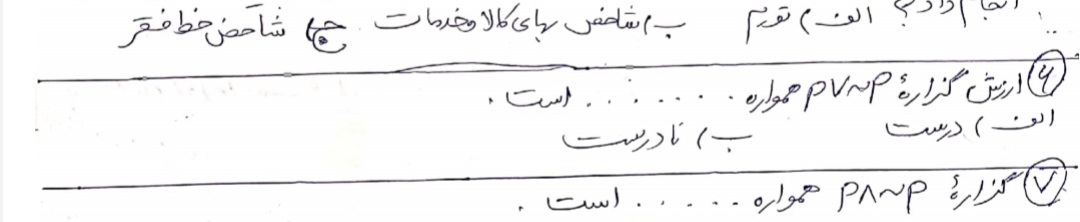 انجام داد؟ الف) تورم ب) شاخص بهای کالا و خدمات ج) شاخص خط فقر
۶) ارزش گزارهٔ p∨~p همواره ........ است.
الف) درست ب) نادرست
۷) گزارهٔ p∧~p همواره ...... است.